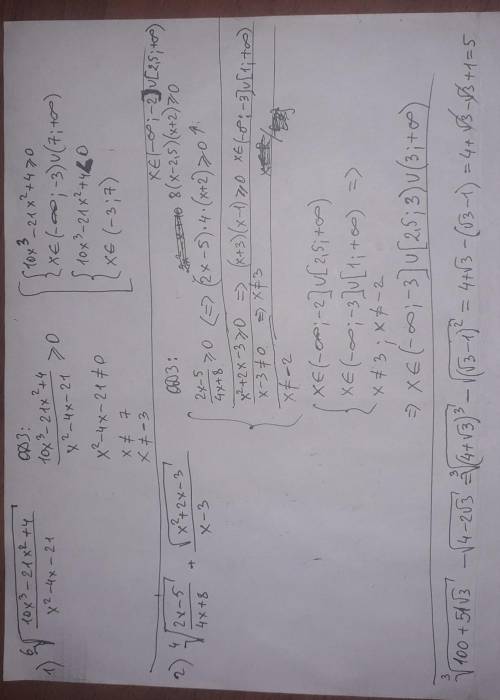 1) ⁶√((10x³-21x²+4)/(x²-4x-21))
ОДЗ:
(10x³-21x²+4)/(x²-4x-21) ≥ 0
x²-4x-21≠0
x ≠ 7
x ≠ -3
{ 10x³-21x²+4≥0
x∈(-∞;-3)∪(7;+∞)
{ 10x³-21x²+4<0
x∈(-3;7)
2) ⁴√((2x-5)/(4x+8)) + √(x²+2x-3)/(x-3)
ОДЗ:
8(x-2,5)(x+2)≥0 x∈(-∞;-2]∪[2,5;+∞)
(2x-5)/(4x+8) ≥0 (=> (2x-5)·4·(x+2)≥0
x²+2x-3≥0 => (x+3)(x-1)≥0 x∈(-∞;-3]∪[1;+∞)
x-3≠0 => x≠3
x≠-2
{ x∈(-∞;-2]∪[2,5;+∞)
x∈(-∞;-3]∪[1;+∞) =>
x≠3; x≠-2
=> x∈(-∞;-3]∪[2,5;3)∪(3;+∞)
³√(100+51√3) - √(4-2√3) = ³√((4+√3)³) - √((√3-1)²) = 4+√3-(√3-1) = 4+√3-√3+1=5